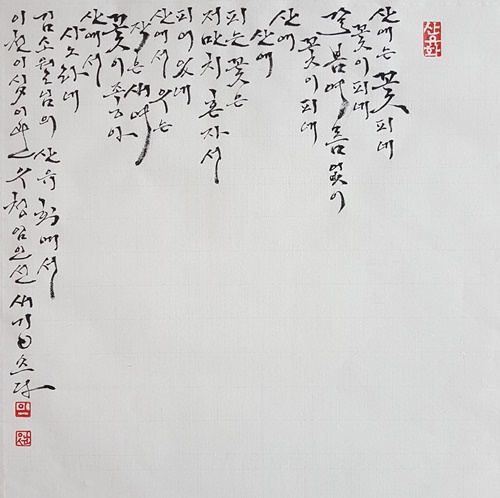 산유화
산에는 꽃피네
꽃이피네
갈 봄 여름없이
꽃이피네
산에
산에
피는 꽃은
저만치 혼자서
피어있네
산에서 우는
작은 새여
꽃이 좋아
산에서
사노라네
김소월님의 산유화에서
이천이십이 우청 임인선